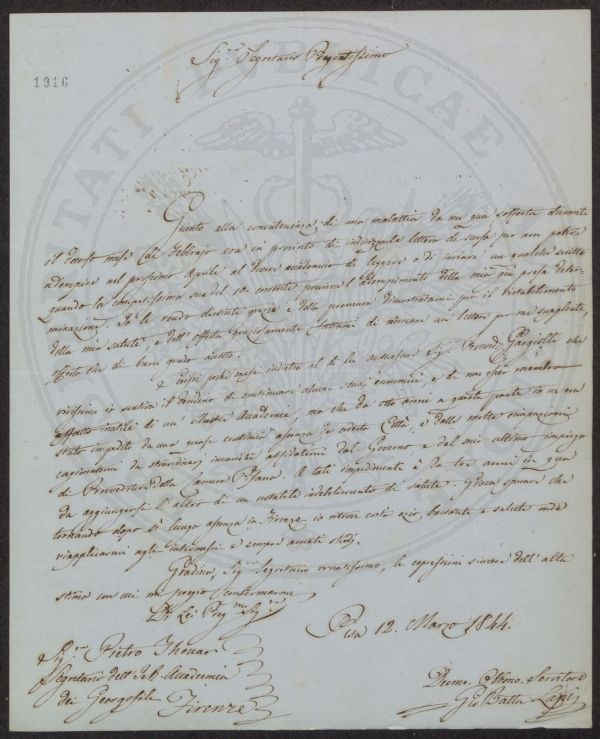 1916
Sig.re Segretario Pregiatissimo
Giunto alla convalescenza di una malattia da me qua sofferta durante
il decorso mese di Febbrajo era in procinto di indirizzarle lettera di scusa per non potere
adempire nel prossimo Aprile al dovere accademico di leggere o di inviare un qualche scritto
quando la compitissima sua del 10. corrente prevenne l'adempimento della mia già presa deter-
minazione. Io le rendo distinte grazie e della premura dimostratami per il ristabilimento
della mia salute, e dell'offerta graziosamente fattami di cercare un lettore per me supplente,
offerta che di buon grado accetto.
E dissi pochi mesi indietro al di lei antecessore Sig.re Gazzeri che
vivissimo io sentiva il desiderio di continuare alcuni studj economici e di non essere membro
affatto inutile di un'illustre Accademia, ma che da otto anni a questa parte io ne era
stato impedito da una quasi continua assenza da codesta Città, e dalle molte occupazioni
cagionatemi da straordinarj incarichi affidatimi dal Governo e dal mio attuale impiego
di Provveditore della Camera Pisana. A tali impedimenti è da tre anni in qua
da aggiungersi l'altro di un notabile indebolimento di salute. Giova sperare che
tornando dopo sì lunga assenza in Firenze io ritrovi costà ozio bastante e salute onde
riapplicarmi agli interrotti e sempre amati studj.
Gradisca, Sig.re Segretario ornatissimo, le espressioni sincere dell'alta
stima con cui mi pregio confermarmi
Di Lei Preg.mo Sig.re
Pisa 12. Marzo 1844.
Sig.re Pietro Thouar
Segretario dell'I. e R. Accademia
dei Georgofili Firenze
Devmo. Obbmo. Servitore
Gio Batta Lapi